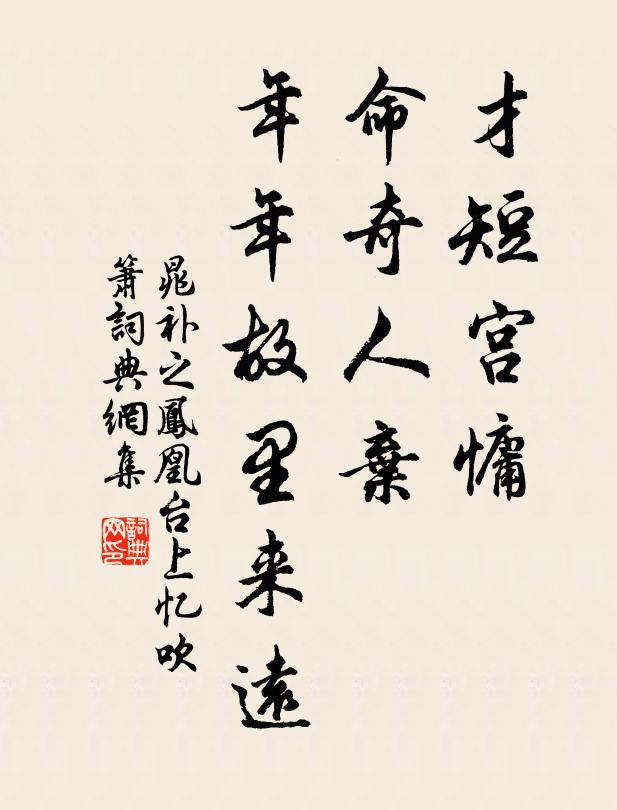 才短宫慵
命奇人棄
年年故里来遠
晁补之鳳凰台上忆吹
簫詞典網集
詞典
网印